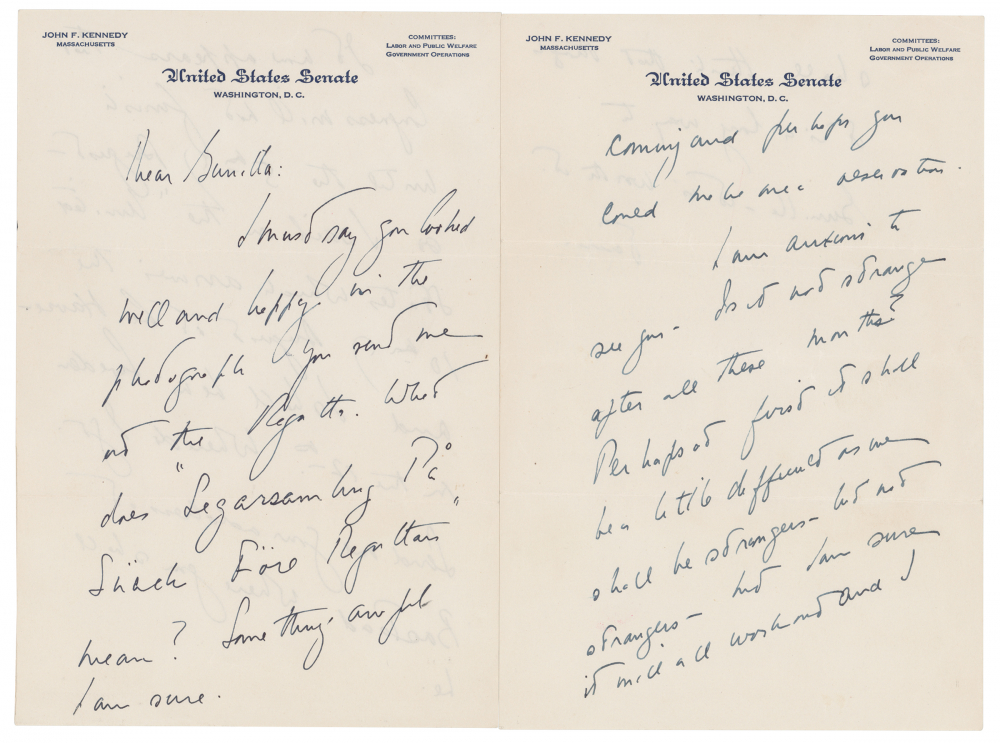 JOHN F. KENNEDY
MASSACHUSETTS
COMMITTEES:
LABOR AND PUBLIC WELFARE
GOVERNMENT OPERATIONS
United States Senate
WASHINGTON, D. C.
Dear Gunilla:
I must say you looked
well and happy in the
photograph you send me
at the Regatta. What
does "Segarsamling På
Före Regattan"
mean? Something awful
I am sure.
JOHN F. KENNEDY
MASSACHUSETTS
COMMITTEES:
LABOR AND PUBLIC WELFARE
GOVERNMENT OPERATIONS
United States Senate
WASHINGTON, D. C.
coming and perhaps you
could make me a reservation.
I am anxious to
see you - Is it not strange
after all these months?
Perhaps at first it shall
be a little difficult as we
shall be strangers - but not
strangers - but I am sure
it will all work out and I